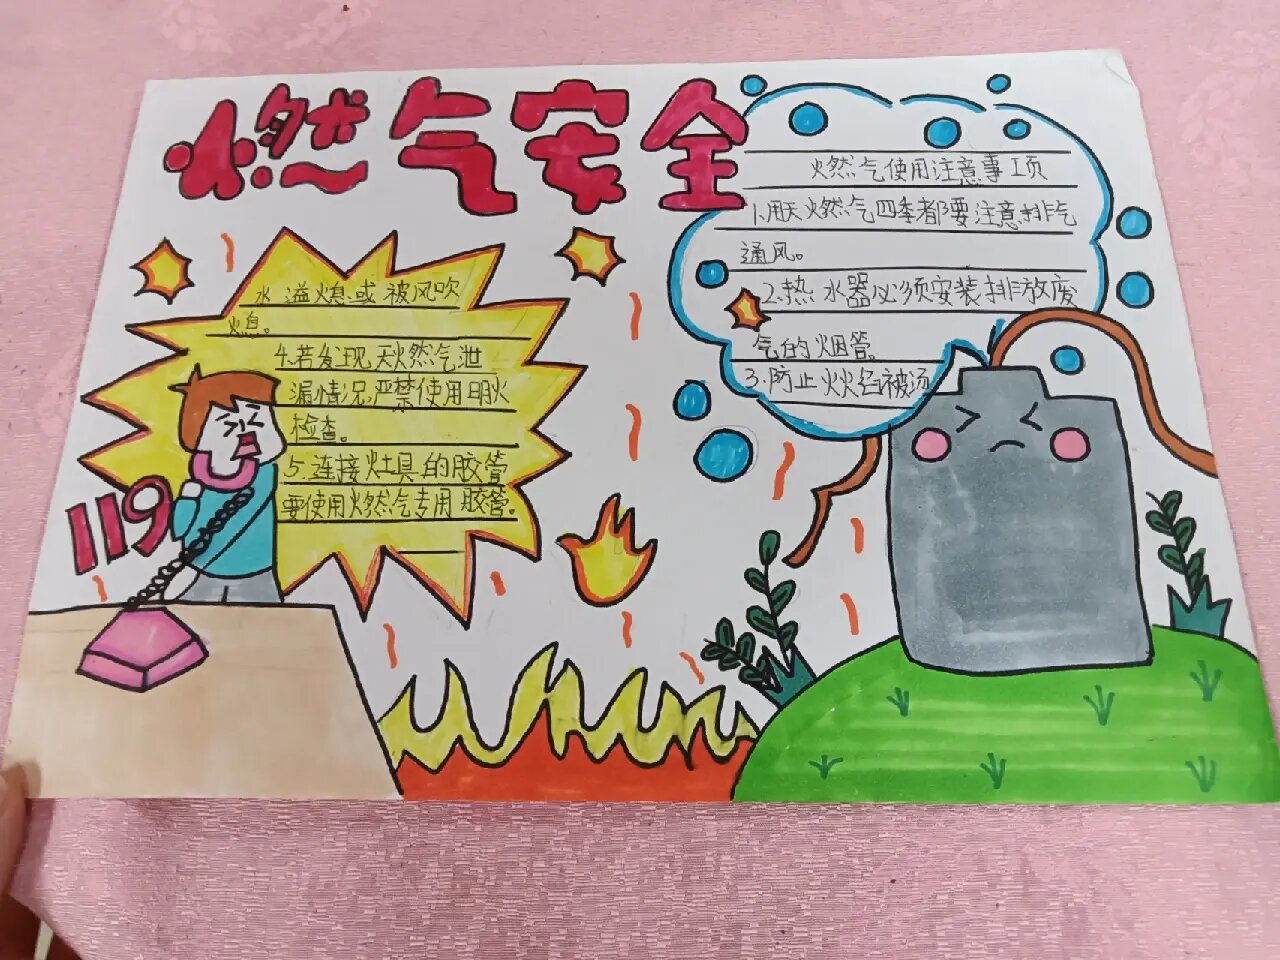 燃气安全
燃气使用注意事项
1.用天燃气四季都要注意排气
通风。
2.热水器必须安装排放废
气的烟管。
3.防止火焰被汤
水溢熄或被风吹
熄。
4.若发现天燃气泄
漏情况,严禁使用明火
检查。
5.连接灶具的胶管
要使用燃气专用胶管。
119